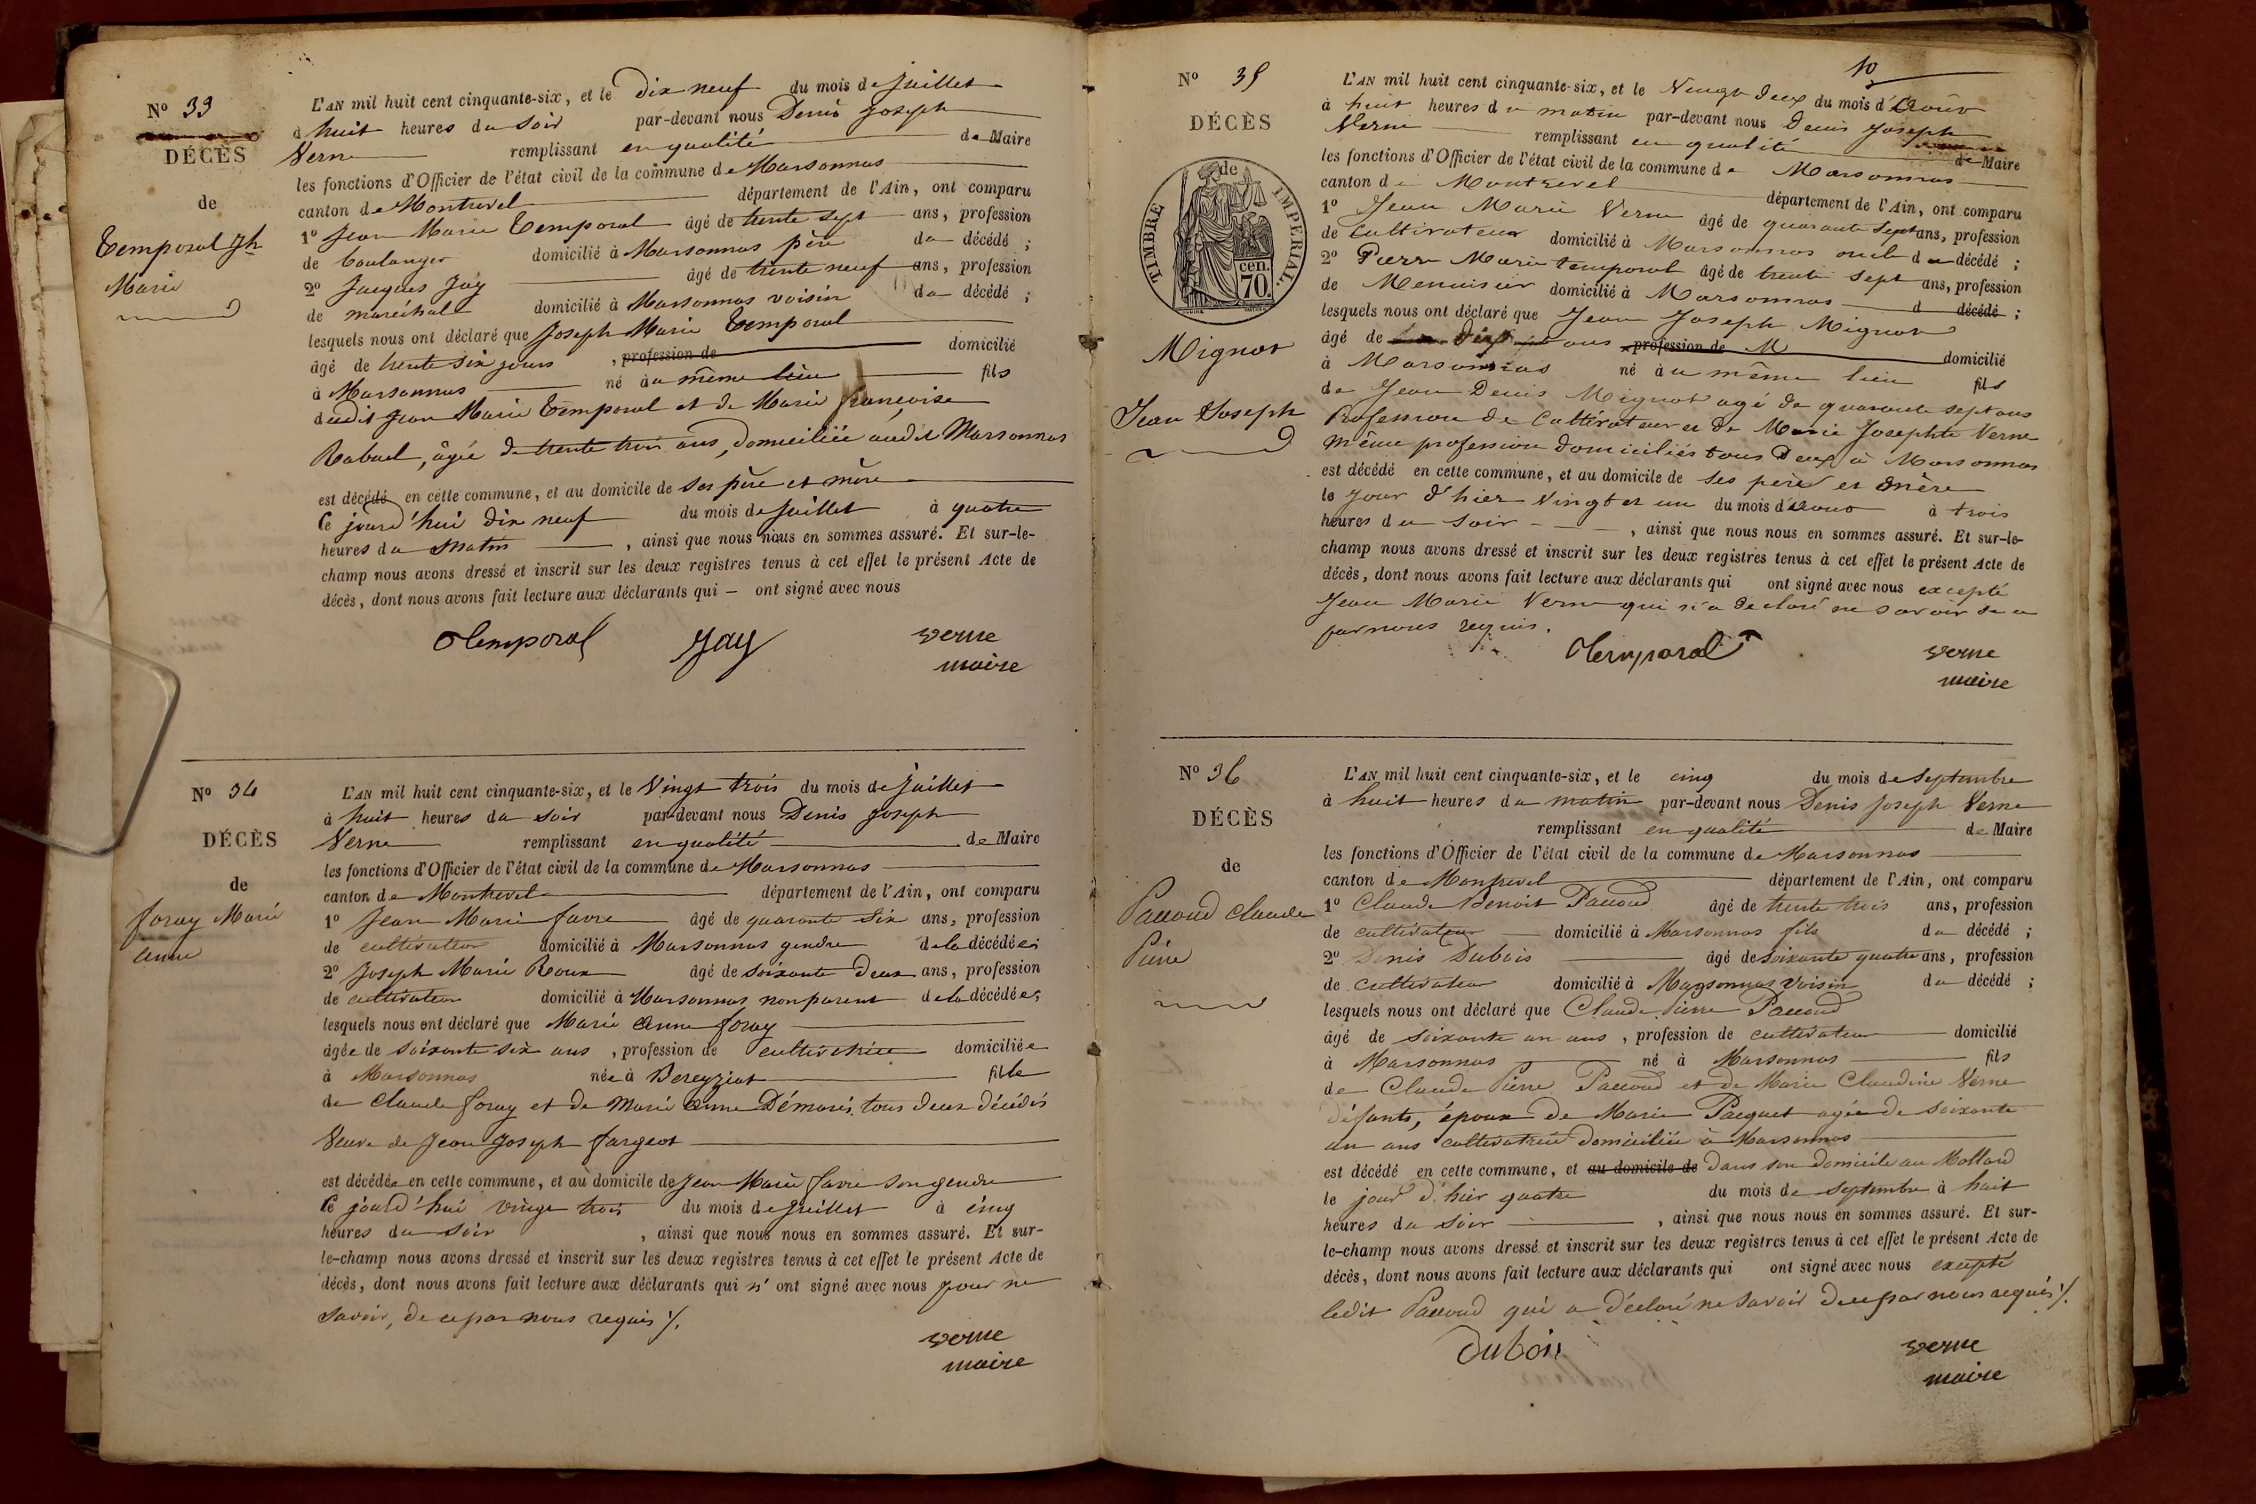 N° 33
DÉCÈS
de
Temporal Jh
Marie
L'AN mil huit cent cinquante-six, et le Dix neuf du mois de Juillet
à huit heures du Soir par-devant nous Denis Joseph
Verne remplissant en qualité de Maire
les fonctions d'Officier de l'état civil de la commune de Marsonnas
canton de Montrevel département de l'Ain, ont comparu
1° Jean Marie Temporal âgé de trente sept ans, profession
de boulanger domicilié à Marsonnas père du décédé ;
2° Jacques Jay âgé de trente neuf ans, profession
de maréchal domicilié à Marsonnas voisin du décédé ;
lesquels nous ont déclaré que Joseph Marie Temporal
âgé de trente six jours , profession de domicilié
à Marsonnas né au même lieu fils
dudit Jean Marie Temporal et de Marie françoise
Rabuel, âgée de trente trois ans, domiciliée audit Marsonnas
est décédé en cette commune, et au domicile de ses père et mère
Ce jourd'hui dix neuf du mois de Juillet à quatre
heures du matin , ainsi que nous nous en sommes assuré. Et sur-le-
champ nous avons dressé et inscrit sur les deux registres tenus à cet effet le présent Acte de
décès, dont nous avons fait lecture aux déclarants qui – ont signé avec nous
Temporal Jay verne
maire
N° 34
DÉCÈS
de
foray Marie
anne
L'AN mil huit cent cinquante-six, et le Vingt trois du mois de Juillet
à huit heures du soir par-devant nous Denis Joseph
Verne remplissant en qualité de Maire
les fonctions d'Officier de l'état civil de la commune de Marsonnas
canton de Montrevel département de l'Ain, ont comparu
1° Jean Marie favre âgé de quarante six ans, profession
de cultivateur domicilié à Marsonnas gendre de la décédée ;
2° Joseph Marie Roux âgé de soixante deux ans, profession
de cultivateur domicilié à Marsonnas non parent de la décédée ;
lesquels nous ont déclaré que Marie Anne foray
âgée de soixante six ans , profession de cultivatrice domiciliée
à Marsonnas née à Bereyziat fille
de Claude foray et de Marie Anne Démarés, tous deux décédés
Veuve de Jean Joseph fargeot
est décédée en cette commune, et au domicile de Jean Marie favre son gendre
Ce jourd'hui vingt trois du mois de Juillet à cinq
heures du soir , ainsi que nous nous en sommes assuré. Et sur-
le-champ nous avons dressé et inscrit sur les deux registres tenus à cet effet le présent Acte de
décès, dont nous avons fait lecture aux déclarants qui n' ont signé avec nous pour ne
savoir, de ce par nous requis ./.
verne
maire
10
N° 35
DÉCÈS
de
TIMBRE IMPERIAL.
70 cen.
Mignot
Jean Joseph
L'AN mil huit cent cinquante-six, et le Vingt deux du mois d'Août
à huit heures du matin par-devant nous Denis Joseph
Verne remplissant en qualité de Maire
les fonctions d'Officier de l'état civil de la commune de Marsonnas
canton de Montrevel département de l'Ain, ont comparu
1° Jean Marie Verne âgé de quarante sept ans, profession
de Cultivateur domicilié à Marsonnas oncle du décédé ;
2° Pierre Marie temporal âgé de trente sept ans, profession
de Menuisier domicilié à Marsonnas d décédé ;
lesquels nous ont déclaré que Jean Joseph Mignot
âgé de dix ans profession de M domicilié
à Marsonnas né au même lieu fils
de Jean Denis Mignot agé de quarante sept ans
Profession de Cultivateur et de Marie Josephte Verne
même profession domiciliés tous deux à Marsonnas
est décédé en cette commune, et au domicile de ses père et mère
le jour d'hier vingt et un du mois d'août à trois
heures du soir , ainsi que nous nous en sommes assuré. Et sur-le-
champ nous avons dressé et inscrit sur les deux registres tenus à cet effet le présent Acte de
décès, dont nous avons fait lecture aux déclarants qui ont signé avec nous excepté
Jean Marie Verne qui n'a declaré ne savoir de ce
par nous requis.
Temporal verne
maire
N° 36
DÉCÈS
de
Paccoud Claude
Pierre
L'AN mil huit cent cinquante-six, et le cinq du mois de Septembre
à huit heures du matin par-devant nous Denis Joseph Verne
remplissant en qualité de Maire
les fonctions d'Officier de l'état civil de la commune de Marsonnas
canton de Montrevel département de l'Ain, ont comparu
1° Claude Benoit Paccoud âgé de trente trois ans, profession
de cultivateur domicilié à Marsonnas fils du décédé ;
2° Denis Dubois âgé de soixante quatre ans, profession
de cultivateur domicilié à Marsonnas Voisin du décédé ;
lesquels nous ont déclaré que Claude Pierre Paccoud
âgé de soixante un ans , profession de cultivateur domicilié
à Marsonnas né à Marsonnas fils
de Claude Pierre Paccoud et de Marie Claudine Verne
défunts, époux de Marie Pacquet agée de soixante
un ans cultivatrice domiciliée à Marsonnas
est décédé en cette commune, et au domicile de Dans son domicile au Mollard
le jour d'hier quatre du mois de septembre à huit
heures du soir , ainsi que nous nous en sommes assuré. Et sur-
le-champ nous avons dressé et inscrit sur les deux registres tenus à cet effet le présent Acte de
décès, dont nous avons fait lecture aux déclarants qui ont signé avec nous excepté
ledit Paccoud qui a déclaré ne savoir de ce par nous requis ./.
Dubois verne
maire